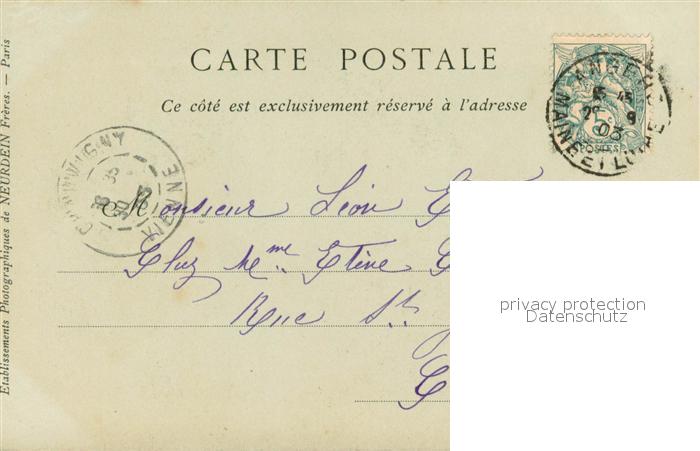 CARTE POSTALE
Ce côté est exclusivement réservé à l'adresse
Etablissements Photographiques de NEURDEIN Frères. — Paris
ANGERS
MAINE ET LOIRE
03
POSTES
Monsieur Léon
Chez Mme Etive
Rue St
privacy protection
Datenschutz